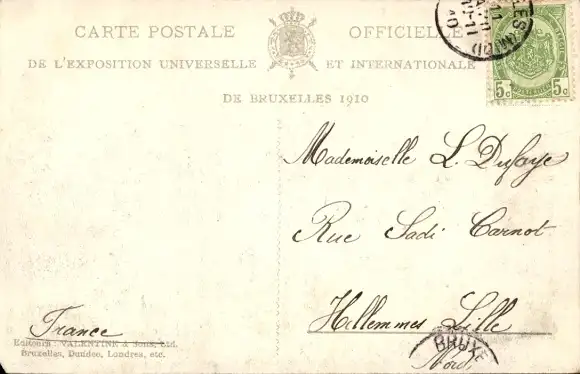 CARTE POSTALE OFFICIELLE
DE L'EXPOSITION UNIVERSELLE ET INTERNATIONALE
DE BRUXELLES 1910
5c 5c
Mademoiselle L. Dufaye
Rue Sadi Carnot
Hellemmes Lille
Nord
France
Editeurs: VALENTINE & Sons, Ltd.
Bruxelles, Dundee, Londres, etc.
BRUXE